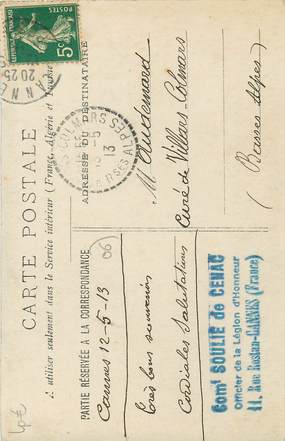 CARTE POSTALE
A utiliser seulement dans le Service intérieur (France, Algérie et Tunisie
PARTIE RÉSERVÉE A LA CORRESPONDANCE
ADRESSE DU DESTINATAIRE
POSTES
5c
20 25
COLMARS
13
BSES ALPES
06
Cannes 12-5-13
Très bons souvenirs
Cordiales salutations
M Audemard
Curé de Villars-Colmars
(Basses-Alpes)
Comt SOULIÉ de CENAC
Officier de la Légion d'Honneur
11, Rue Rostan-CANNES (France)